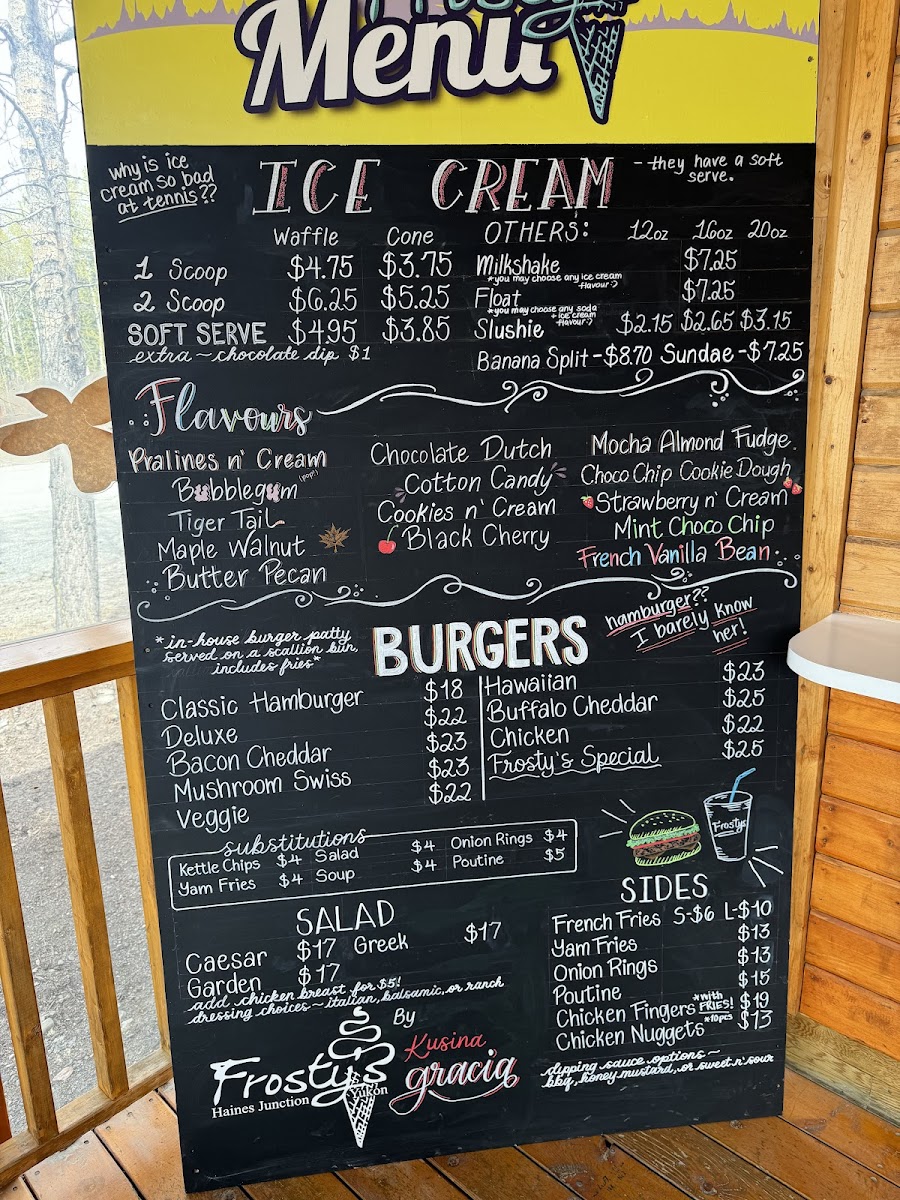 Frosty's
Menu
why is ice
cream so bad
at tennis??
ICE CREAM
- they have a soft
serve.
Waffle Cone
1 Scoop $4.75 $3.75
2 Scoop $6.25 $5.25
SOFT SERVE $4.95 $3.85
extra ~ chocolate dip $1
OTHERS: 12oz 16oz 20oz
Milkshake $7.25
*you may choose any ice cream
flavour :)
Float $7.25
*you may choose any soda
+ ice cream
flavour :)
Slushie $2.15 $2.65 $3.15
Banana Split - $8.70 Sundae - $7.25
Flavours
Pralines n' Cream
Bubblegum (pop!)
Tiger Tail
Maple Walnut
Butter Pecan
Chocolate Dutch
Cotton Candy
Cookies n' Cream
Black Cherry
Mocha Almond Fudge
Choco Chip Cookie Dough
Strawberry n' Cream
Mint Choco Chip
French Vanilla Bean
*in-house burger patty
served on a scallion bun,
includes fries*
BURGERS
hamburger??
I barely know
her!
Classic Hamburger $18
Deluxe $22
Bacon Cheddar $23
Mushroom Swiss $23
Veggie $22
Hawaiian $23
Buffalo Cheddar $25
Chicken $22
Frosty's Special $25
substitutions
Kettle Chips $4 Salad $4 Onion Rings $4
Yam Fries $4 Soup $4 Poutine $5
Frostys
SALAD
Caesar $17 Greek $17
Garden $17
add chicken breast for $5!
dressing choices ~ italian, balsamic, or ranch
SIDES
French Fries S-$6 L-$10
Yam Fries $13
Onion Rings $13
Poutine $15
Chicken Fingers *with FRIES! $19
Chicken Nuggets *10pcs $13
dipping sauce options ~
bbq, honey mustard, or sweet n' sour
By
Frosty's
Haines Junction Yukon
Kusina
gracia